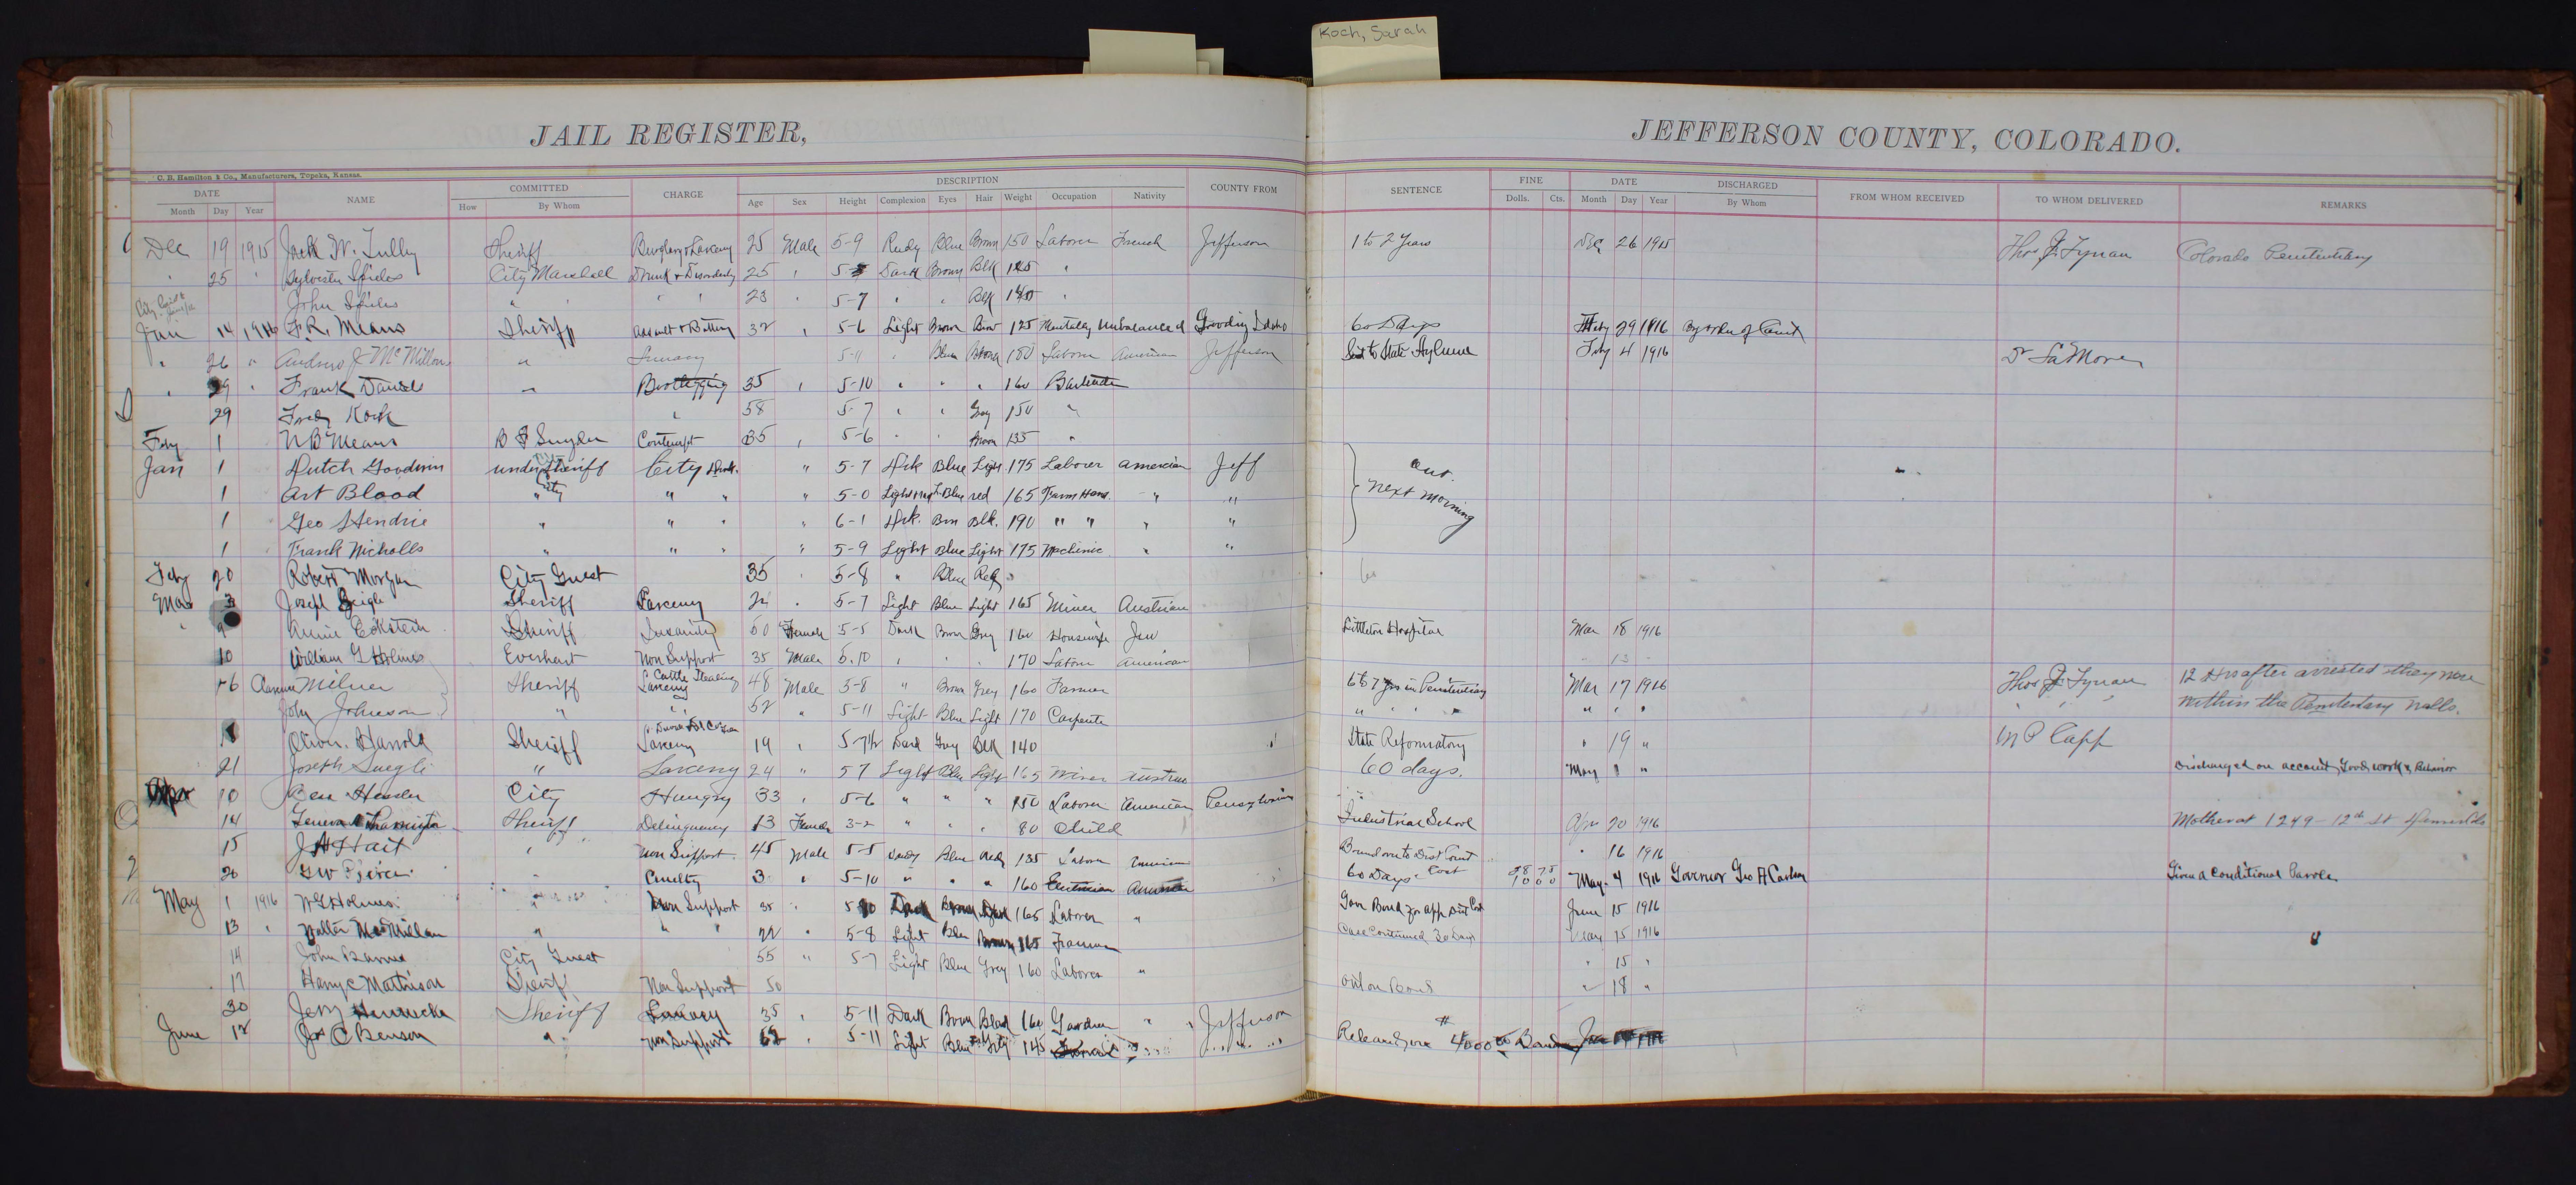 Koch, Sarah
JAIL REGISTER, JEFFERSON COUNTY, COLORADO.
C. B. Hamilton & Co., Manufacturers, Topeka, Kansas.
DATE NAME COMMITTED CHARGE DESCRIPTION COUNTY FROM SENTENCE FINE DATE DISCHARGED FROM WHOM RECEIVED TO WHOM DELIVERED REMARKS
Month Day Year How By Whom Age Sex Height Complexion Eyes Hair Weight Occupation Nativity Dolls. Cts. Month Day Year By Whom
Dec 19 1915 Jack W. Tully Sheriff Burglary & Larceny 25 Male 5-9 Rudy Blue Brown 150 Laborer French Jefferson 1 to 2 Years Dec 26 1915 Thos J. Tynan Colorado Penitentiary
" 25 " Sylvester Spieles City Marshall Drunk & Disorderly 25 " Dark Brown Blk "
John Spieles " " " " 23 " 5-7 " " Blk "
Jan 14 1916 F. R. Means Sheriff Assault & Battery 32 " 5-6 Light Brown Brow 125 Mentally Unbalanced Gooding Idaho 60 Days Feby 29 1916 By order of Court
" 26 " Andrew J McMillon " Lunacy 5-11 " Blue Brown 180 Laborer American Jefferson Sent to State Asylum Feby 4 1916 Dr LaMoure
" 29 " Frank David " Bootlegging 35 " 5-10 " " " 160 Bartender
29 Fred Koch " 58 5-7 " " Grey 150 "
Feby 1 N B Means B F Snyder Contempt 35 " 5-6 " " Brown 135 "
Jan 1 Dutch Goodwin under Sheriff City Drunk. " 5-7 Drk Blue Light 175 Laborer American Jeff out.
1 Art Blood " City " " " 5-0 Light Blue red 165 Farm Hand " " next morning
1 Geo Hendrie " " " " 6-1 Drk. Brn Blk. 190 " " " "
1 Frank Nicholls " " " " 5-9 Light Blue Light 175 Mechinic " "
Feby 20 Robert Morgan City Guest 35 " 5-8 " Blue Red
Mar 3 Joseph Sheriff Larceny " 5-7 Light Blue Light 165 Miner Austrian
" 9 Annie Eckstein Sheriff Insanity 60 Female 5-5 Dark Brown Grey 160 Housewife Jew Littleton Hospital Mar 18 1916
10 William G Holmes Everhart Non Support 35 Male 5.10 " " " 170 Labor American " 13 "
16 Clarence Milner Sheriff Cattle Stealing Larceny 48 Male 5-8 " Brown Grey 160 Farmer 6 to 7 yrs in Penitentiary Mar 17 1916 Thos J. Tynan 12 Hrs after arrested they were
John Johnson " " 52 " 5-11 Light Blue Light 170 Carpenter " " " " " " " " " " within the Penitentiary walls.
Oliver Harrold Sheriff Larceny 19 " 5-7½ Dark Grey Blk 140 State Reformatory " 19 " M P Capp
21 Joseph Suegli " Larceny 24 " 5 7 Light Blue Light 165 Miner Austrian 60 days. May 1 " Discharged on account Good work & Behavior
Apr 10 Ben Hessler City Hungry 33 " 5-6 " " " 150 Laborer American Pensylvania
14 Geneva Sheriff Delinquency 13 Female 3-2 " " " 80 Child Industrial School Apr 20 1916 Mother at 1249 - 12th St
15 J H Hait " Non Support 45 Male 5-5 Rudy Blue Red 135 Labor American Bound over to Dist Court " 16 1916
26 G W Pierce " Cruelty 3 " 5-10 " " " 160 American 60 Days Cost May 4 1916 Governor Geo A Carlson Given a Conditional Parole
May 1 1916 W G Holmes " Non Support 35 " 5 10 Dark Brown Dark 165 Laborer " Gave Bond for app Dist Court June 15 1916
13 " Walter McMillan " " " 22 " 5-8 Light Blue Brown 165 Case Continued 30 Days May 15 1916
14 John City Guest 55 " 5-7 Light Blue Grey 160 Laborer " " 15 "
17 Harry C Mathison Sheriff Non Support 50 out on Bond " 18 "
30 Jerry Sheriff 35 " 5-11 Dark Brown Black 160 Gardner " Jefferson
June 12 Jas C Benson " Non Support 62 " 5-11 Light Blue 145 Released on # 4000 00 Bond